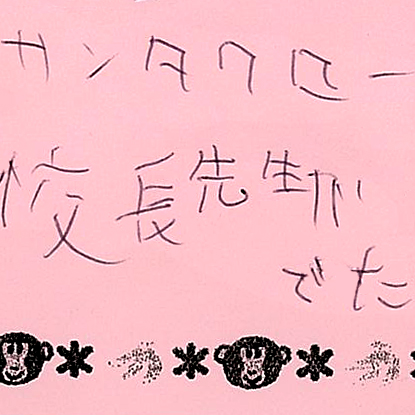 サンタクロー
校長先生が
でた